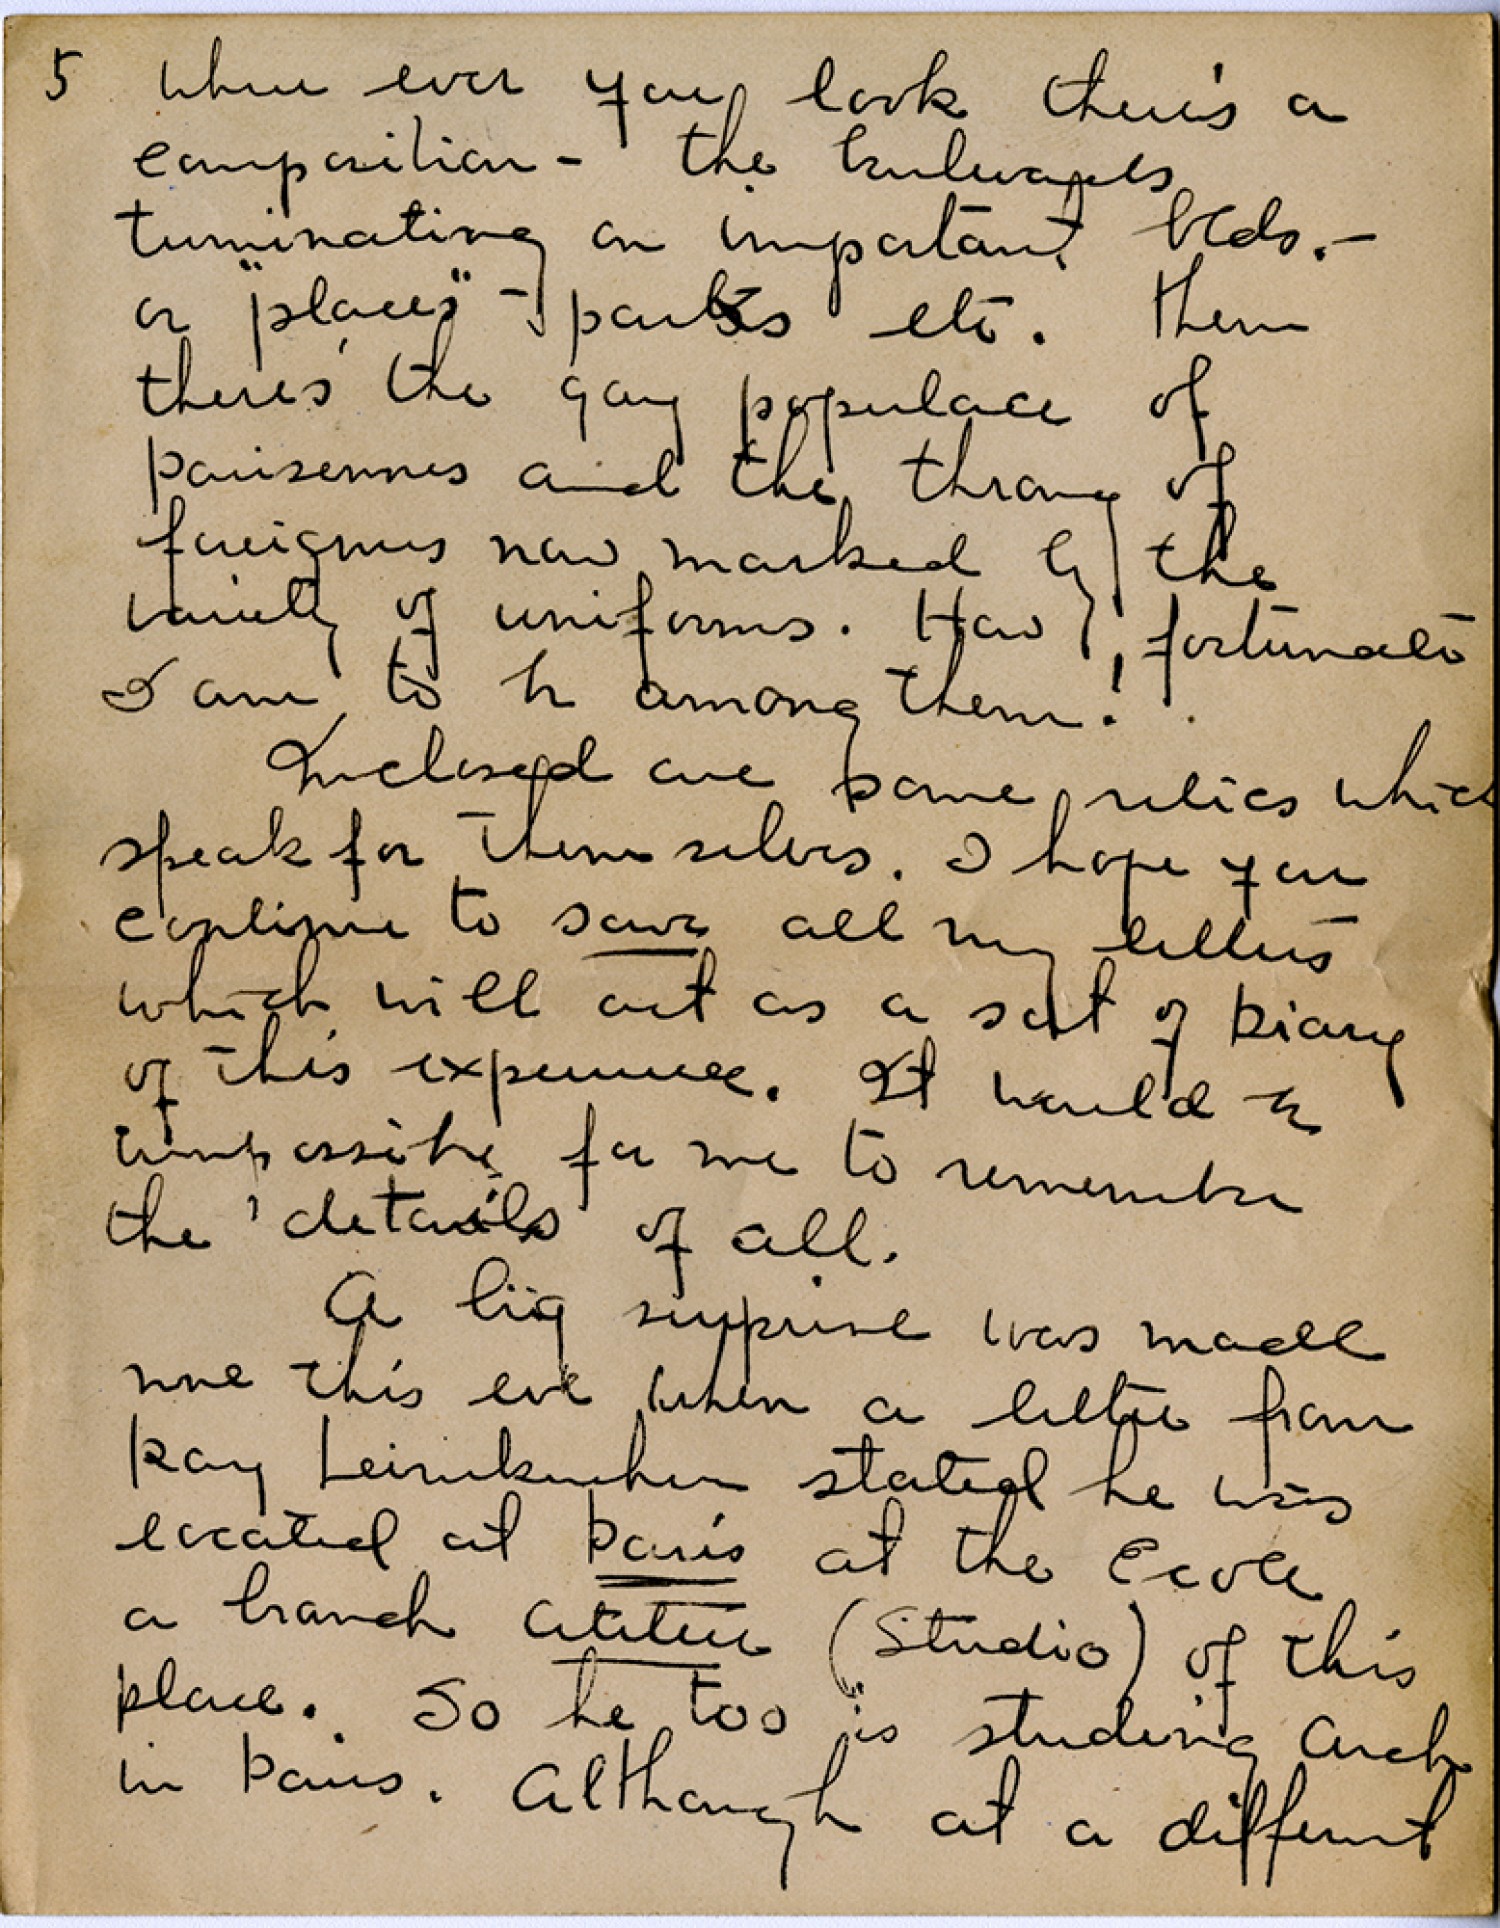 5 where ever you look there's a
composition - the bulevards
terminating on important blds. -
or "places" - parks etc. Then
there's the gay populace of
parisennes and the throng of
foreigners now marked by the
variety of uniforms. How fortunate
I am to be among them!
Inclosed are some relics which
speak for themselves. I hope you
continue to save all my letters
which will act as a sort of Diary
of this experience. It would be
impossible for me to remember
the details of all.
A big surprise was made
me this eve when a letter from
Ray stated he was
located at Paris at the Ecole
a branch (Studio) of this
place. So he too is studing Arch
in Paris. Although at a different